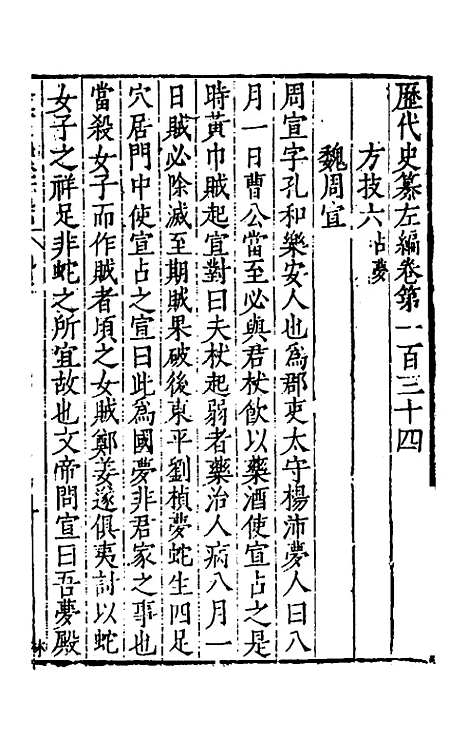 歷代史纂左編卷第一百三十四
方技六占夢
魏周宣
周宣字孔和樂安人也為郡吏太守楊沛夢人曰八
月一日曹公當至必與君杖飲以藥酒使宣占之是
時黃巾賊起宣對曰夫杖起弱者藥治人病八月一
日賊必除滅至期賊果破後東平劉楨夢蛇生四足
穴居門中使宣占之宣曰此為國夢非君家之事也
當殺女子而作賊者頃之女賊鄭姜遂俱夷討以蛇
女子之祥足非蛇之所宜故也文帝問宣曰吾夢殿